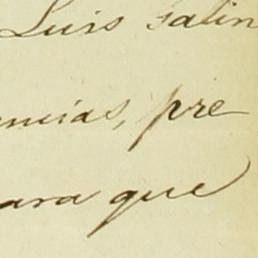 Luis Galin
encias, pre
para que